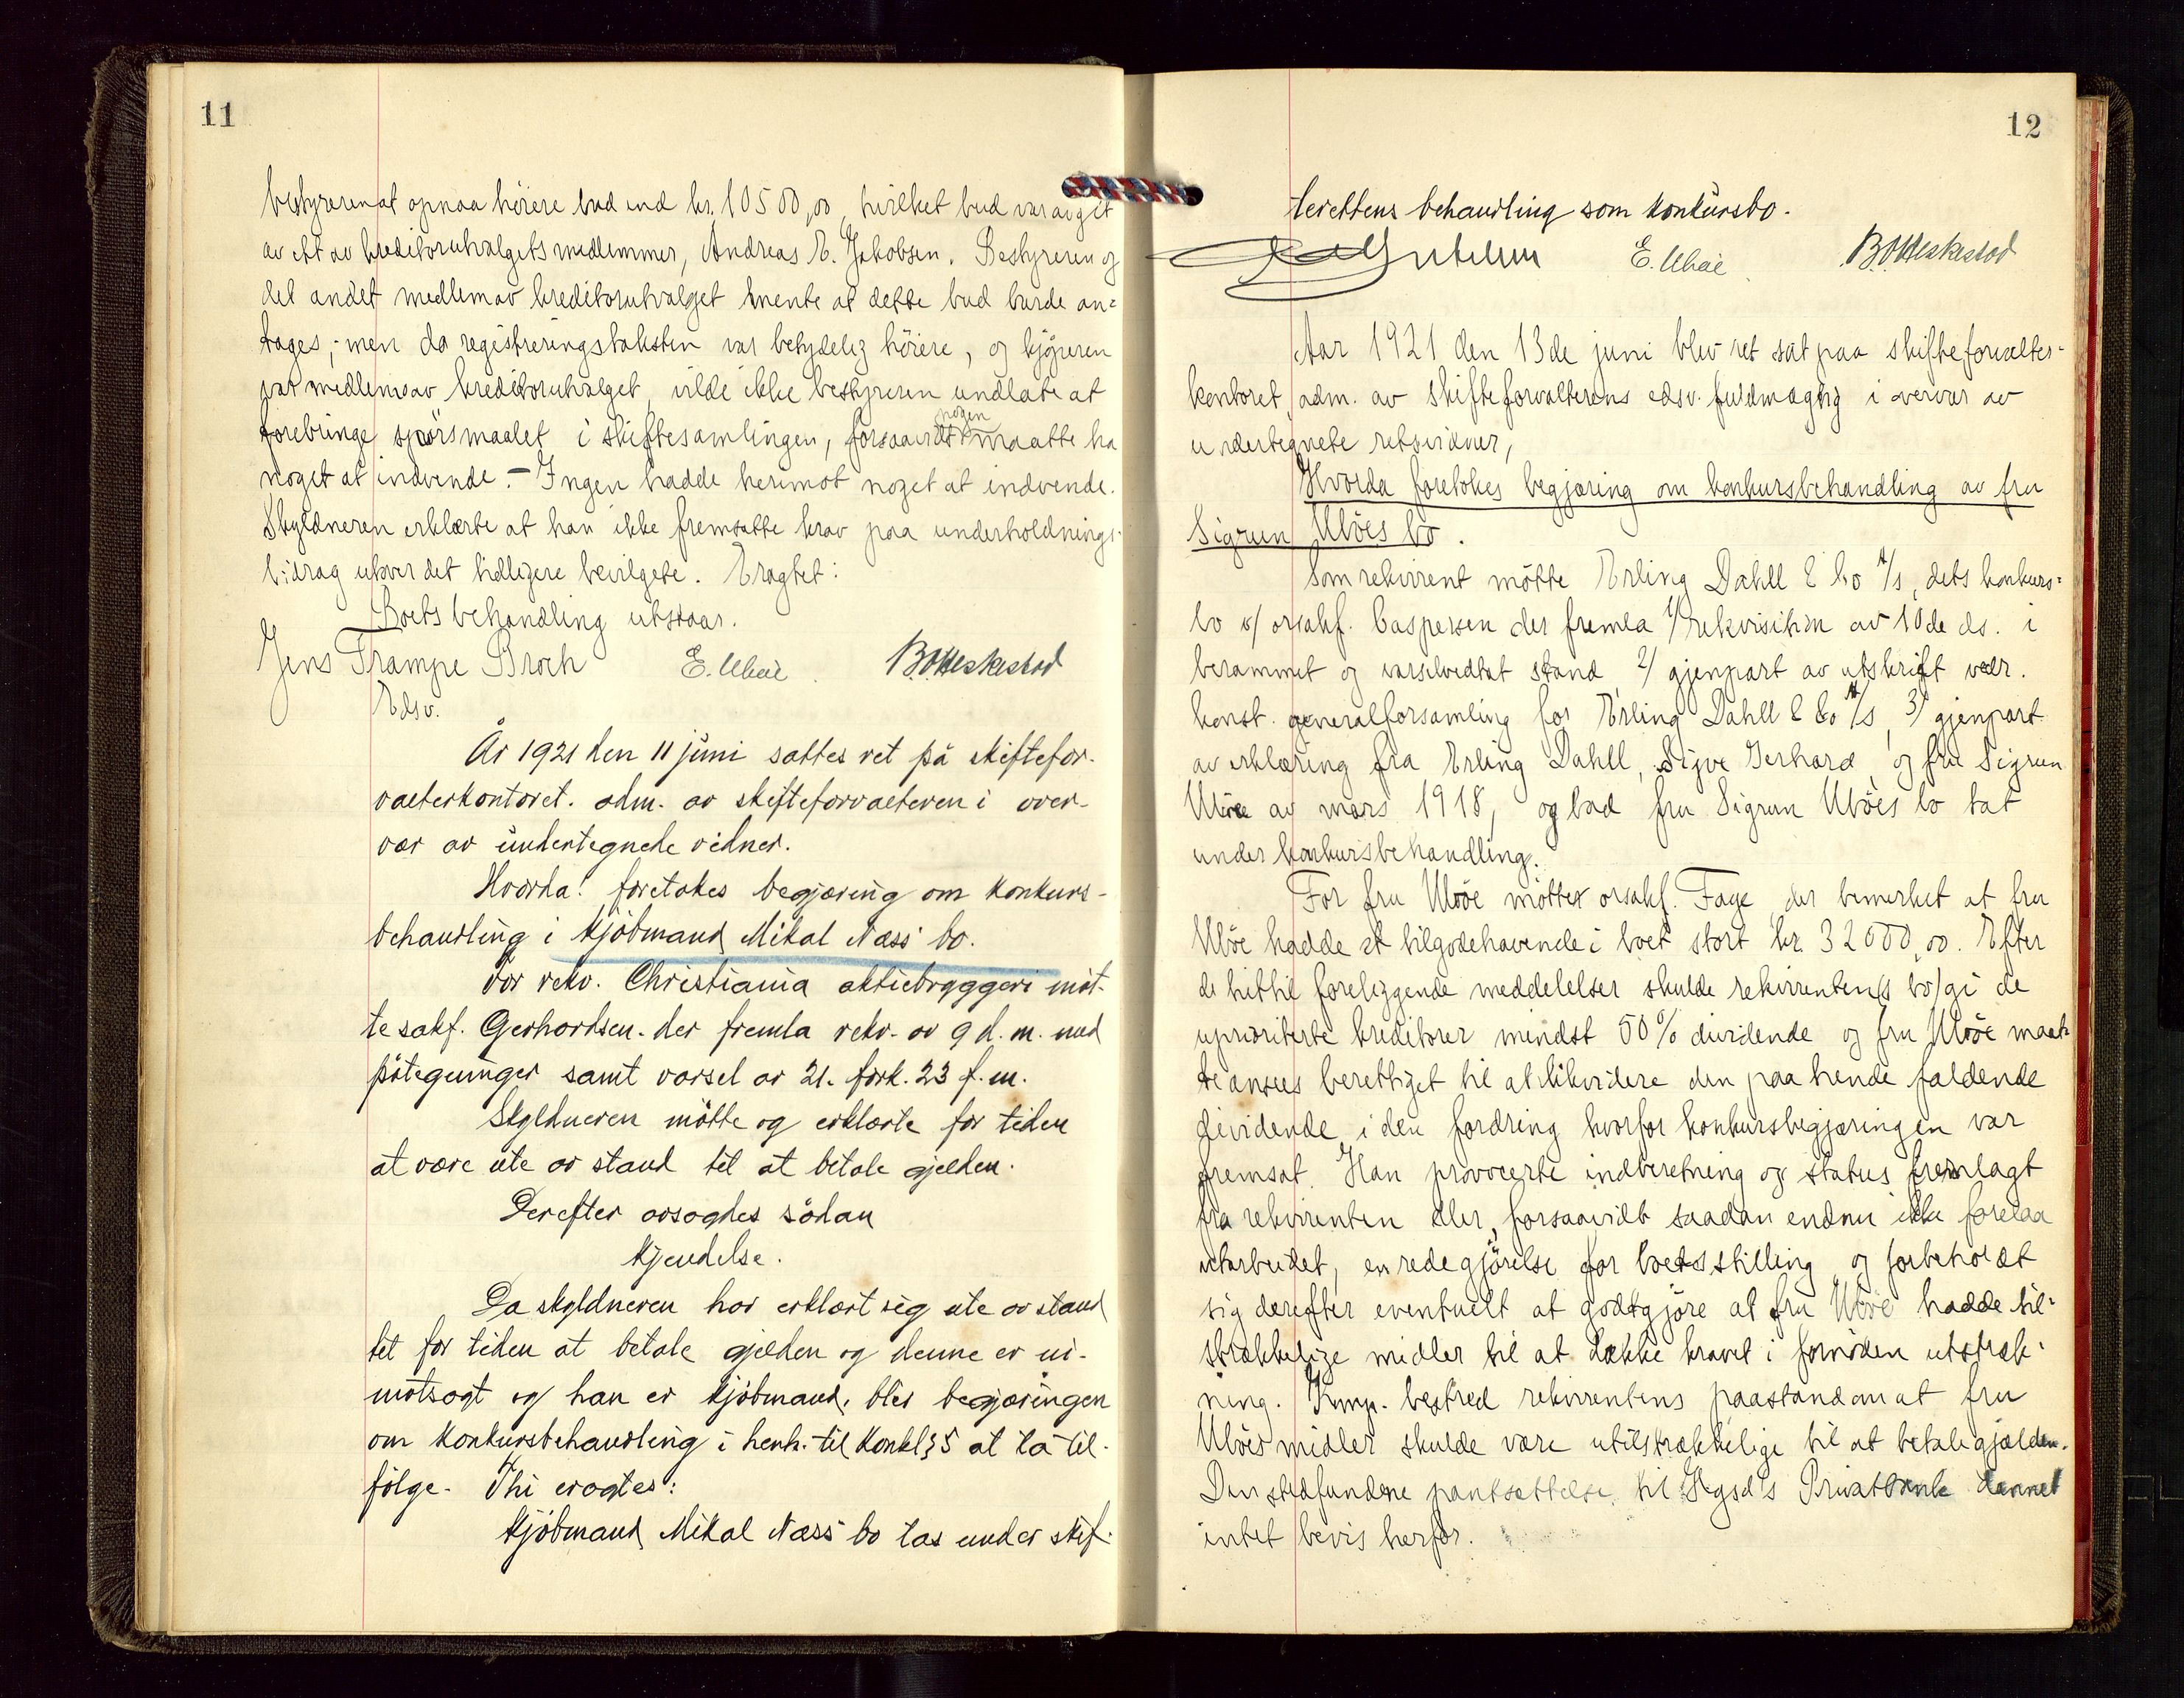 11
bestyreren at opnaa höiere bud end kr. 10500,00, hvilket bud var avgit
av ett av kreditorutvalgets medlemmer, Andreas E. Jakobsen. Bestyreren og
det andet medlem av kreditorutvalget mente at dette bud burde an=
tages,- men da registreringstaksten var betydelig höiere, og kjöperen
var medlem av kreditorutvalget, vilde ikke bestyreren undlate at
forebringe spörsmaalet i skiftesamlingen, forsaavidt nogen maatte ha
noget at indvende. - Ingen hadde herimot noget at indvende.
Skyldneren erklærte at han ikke fremsatte krav paa underholdnings-
bidrag utover det tidligere bevilgete. Eragtet:
Boets behandling utstaar.
Jens Trampe Broch E. B.O. Heskestad
Edsv.
År 1921 den 11 juni sattes ret på skiftefor-
valterkontoret. adm. av skifteforvalteren i over-
vær av undertegnede vidner.
Hvorda! foretokes begjæring om konkurs-
behandling i kjöbmand Mikal Næss' bo.
For rekv. Christiania aktiebryggeri möt-
te sakf. Gerhardsen. der fremla rekv. av 9 d. m. med
påtegninger samt varsel av 21. fork. 23 f. m.
Skyldneren mötte og erklærte for tiden
at være ute av stand til at betale gjelden.
Derefter avsagdes sådan
kjendelse.
Da skyldneren har erklært sig ute av stand
til for tiden at betale gjelden og denne er ui-
motsagt og han er kjöbmand, blir begjæringen
om konkursbehandling i henh. til konkl § 5 at ta til-
fölge. Thi eragtes:
Kjöbmand Mikal Næss' bo tas under skif-
12
terettens behandling som konkursbo.
E. B.O. Heskestad
Aar 1921 den 13de juni blev ret sat paa skifteforvalter-
kontoret adm. av skifteforvalterens edsv. fuldmægtig i overvær av
undertegnete retsvidner,
Hvorda foretokes begjæring om konkursbehandling av fru
Sigrun Ulöes bo.
Som rekvirent mötte Erling Dahll & Co A/S, dets konkurs=
bo v/ orsakf. Caspersen der fremla 1/ rekvisition av 10de ds. i
berammet og varselvedtat stand 2/ gjenpart av utskrift vedr.
konst. generalforsamling for Erling Dahll & Co A/S, 3/ gjenpart
av erklæring fra Erling Dahll, Sigve Gerhard, og fru Sigrun
Ulöe av mars 1918, og bad fru Sigrun Ulöes bo tat
under konkursbehandling.
For fru Ulöe mötter orsakf. Faye der bemerket at fru
Ulöe hadde et tilgodehavende i boet stort kr. 32000,00. Efter
de hittil foreliggende meddelelser skulde rekvirenten(s bo) gi de
uprioriterte kreditorer mindst 50% dividende og fru Ulöe maat-
te ansees berettiget til at likvidere den paa hende faldende
dividende i den fordring hvorfor konkursbegjæringen var
fremsat. Han provocerte indberetning og status fremlagt
fra rekvirenten eller, forsaavidt saadan endnu ikke forelaa
utarbeidet, en redegjörelse for boets stilling og forbeholdt
sig derefter eventuelt at godtgjöre at fru Ulöe hadde til=
strækkelige midler til at dække kravet i fornöden utstræk=
ning. Komp. bestred rekvirentens paastand om at fru
Ulöes midler skulde være utilstrækkelige til at betale gjælden.
Den stedfundne pantsættelse til Hgsd's Privatbank dannet
intet bevis herfor.